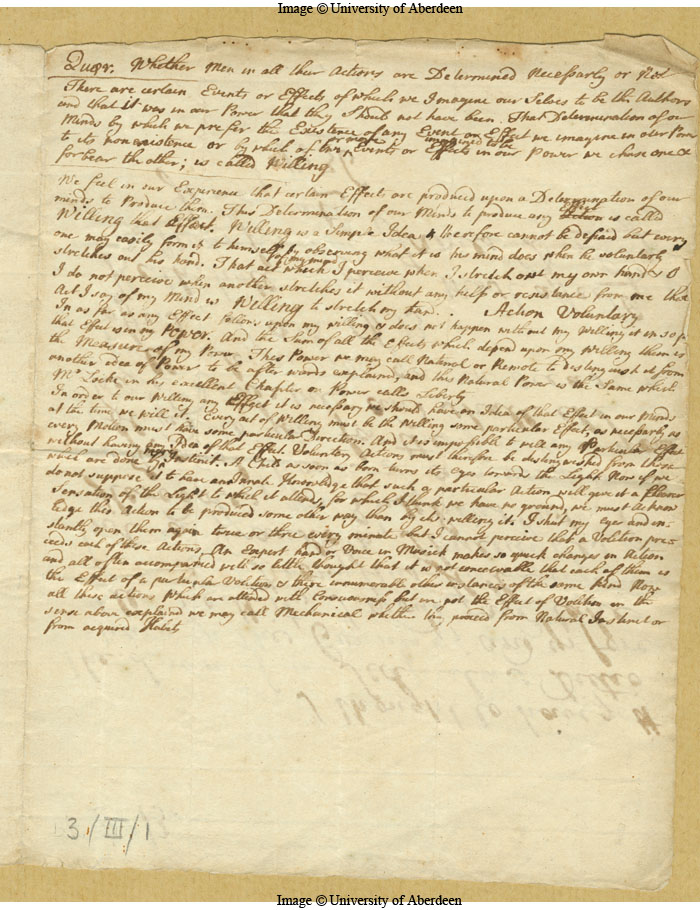 Image © University of Aberdeen
Quær. Whether Men in all their Actions are Determined Necessarly or Not
There are certain Events or Effects of which we Imagine our Selves to be the Authors
and that it was in our Power that they Should not have been. That Determination of our
Minds by which we prefer the Existence of any Event or Effect we imagine in our Power
to its nonexistence or by which of two or more Events or Effects imagined to be in our Power we chuse one &
forbear the other; is called Willing
We feel in our Experience that certain Effects are produced upon a Determination of our
minds to Produce them. This Determination of our Minds to produce any Effect is called
Willing that Effect. Willing is a Simple Idea & therefore cannot be defined but every
one may easily form it to himself by observing what it is his mind does when he voluntarly
stretches out his hand. That act of my mind which I perceive when I stretch out my own hand & O
I do not perceive when another stretches it without any help or resistance from me that
Act I say of my Mind is Willing to stretch my hand. Action Voluntary
In as far as any Effect follows upon my willing & does not happen without my Willing it in so far
that Effect is in my Power. And the Sum of all the Effects which depend upon my Willing them is
the Measure of my Power. This Power we may call Natural or Remote to distinguish it from
another idea of Power to be after wards explained, and this Natural Power is the Same which
Mr Locke in his excellent Chapter on Power calls Liberty
In order to our Willing any Effect it is necessary we should have an Idea of that Effect in our Minds
at the time we will it. Every act of Willing must be the Willing some particular Effect, as necessarly as
every Motion must have some particular Direction. And it is impossible to will any Particular Effect
without having any Idea of that Effect. Voluntary Actions must therefore be distinguished from those
which are done by Instinct. A Child as soon as born turns its eyes towards the Light. Now if we
do not suppose it to have an innate Knowledge that such a particular Action will give it a
Sensation of the Light to which it attends, for which I think we have no ground, we must Acknow
ledge this Action to be produced some other way than by its willing it. I shut my Eyes and in-
stantly open them again twice or thrice every minute but I cannot perceive that a Volition pre-
ceeds each of these Actions. An Expert hand or Voice in Musick makes so quick changes in Action
and all often accompanied with so little thought that it is not conceivable that each of them is
the Effect of a particular Volition & there innumerable other instances of the same kind Now
all these actions which are attended with Consciousness but are not the Effect of Volition in the
sense above explained we may call Mechanical whether they proceed from Natural Instinct or
from acquired Habits
3/III/1
Image © University of Aberdeen